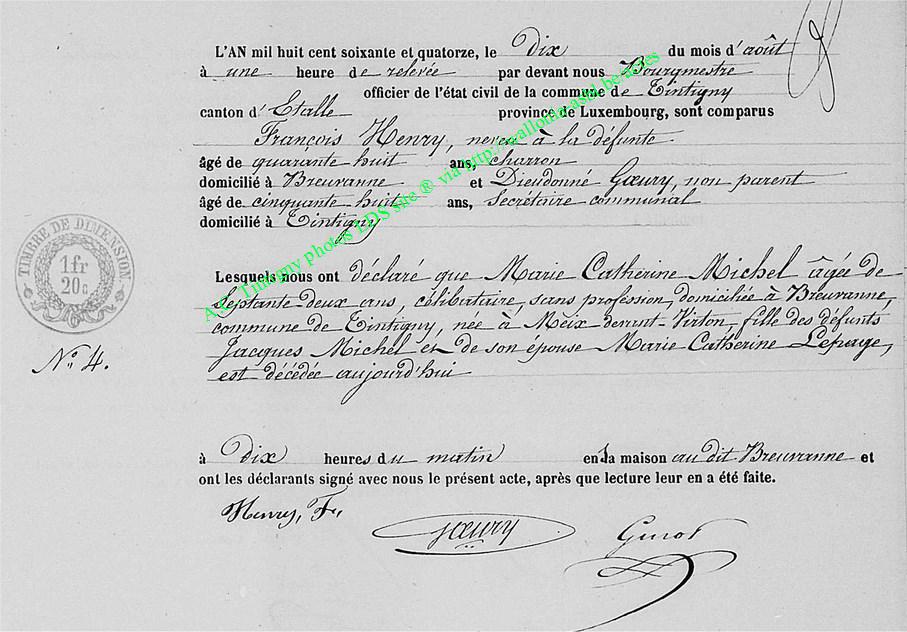 L'AN mil huit cent soixante et quatorze, le Dix du mois d'août
à une heure de relevée par devant nous Bourgmestre
officier de l'état civil de la commune de Tintigny
canton d'Etalle province de Luxembourg, sont comparus
François Henry, neveu à la défunte
âgé de quarante huit ans, charron
domicilié à Breuvanne et Dieudonné Gœury, non parent
âgé de cinquante huit ans, secrétaire communal
domicilié à Tintigny
TIMBRE DE DIMENSION
1fr
20c
Lesquels nous ont déclaré que Marie Catherine Michel âgée de
Septante-deux ans, célibataire, sans profession, domiciliée à Breuvanne,
commune de Tintigny, née à Meix devant-Virton, fille des défunts
Jacques Michel et de son épouse Marie Catherine Lepage,
est décédée aujourd'hui
No. 4.
à Dix heures du matin en la maison au dit Breuvanne et
ont les déclarants signé avec nous le présent acte, après que lecture leur en a été faite.
Henry, F.
Gœury
A.C. Tintigny photos EDS site ® via http://wallonia-asbl.be/actes